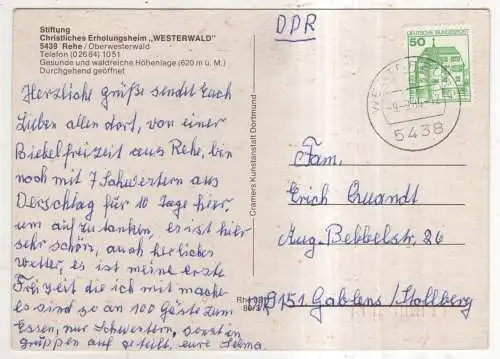 Stiftung
Christliches Erholungsheim „WESTERWALD"
5439 Rehe / Oberwesterwald
Telefon (0 26 64) 10 51
Gesunde und waldreiche Höhenlage (620 m ü. M.)
Durchgehend geöffnet
Herzliche Grüße sendet Euch
Lieben allen dort, von einer
Bibelfreizeit aus Rehe, bin
noch mit 7 Schwestern aus
Derschlag für 10 Tage hier,
um aufzutanken, es ist hier
sehr schön, auch herliches
Wetter, es ist meine erste
Freizeit die ich mit mache
es sind so an 100 Gäste zum
Essen, nur Schwestern, sonst in
grüppen auf geteilt. eure Selma
Cramers Kunstanstalt Dortmund
DPR
DEUTSCHE BUNDESPOST
50
5438
Fam.
Erich Quandt
Aug. Bebbelstr. 26
9151 Gablens/Stollberg